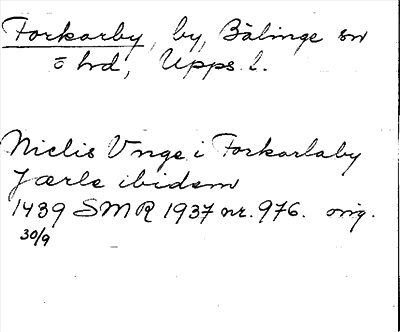 Forkarby, by, Bälinge sn
o hd, Upps. l.
Niclis Vnge i Forkarlaby
Jærle ibidem
1439 SMR 1937 nr. 976. orig.
30/9